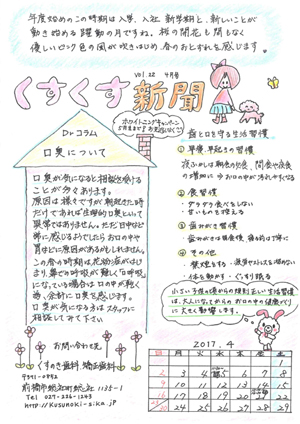 年度始めのこの時期は入学、入社、新学期と、新しいことが
動き始める躍動の月ですね。桜の開花も間もなく
優しいピンク色の風が吹きはじめ春のおとずれを感じます。
vol.22 4月号
くすくす新聞
ホワイトニングキャンペーン
Dr.コラム
口臭について
口臭が気になると相談を受ける
ことが多くあります。
原因は様々ですが朝起きた時
だけであれば生理的口臭といって
異常ではありません。ただ日中など
常に感じるようでしたらお口の中や
胃などに原因があるかもしれません。
この春の時期は花粉症がはじ
まり鼻での呼吸が難しく「口呼吸」に
なっている場合は口の中が乾く
為、余計に口臭を感じます。
口臭が気になる方はスタッフに
相談して下さい
歯と口を守る生活習慣
① 早寝、早起きの習慣
夜ふかしは朝食の欠食、間食や夜食
の増加に⇒お口の中が汚れやすくなる
② 食習慣
・ダラダラ食べをしない
・甘いものを控える
③ 歯みがき習慣
・歯みがきは毎食後、寝る前は丁寧に
④ その他
・禁煙をする ・疲労やストレスを溜めない
・体を動かす ・ぐっすり眠る
小さい子供の頃からの規則正しい生活習慣
は、大人になってからのお口の中の健康づくり
に大きく影響します。
お問い合わせ先
くすのき歯科・矯正歯科
〒371-0852
前橋市総社町総社1135-1
Tel 027-226-1243
http://kusunoki-sika.jp
2017.4
日 月 火 水 木 金 土
1
2 3 4 5 6 7 8
9 10 11 12 13 14 15
16 17 18 19 20 21 22
23 24 25 26 27 28 29
30